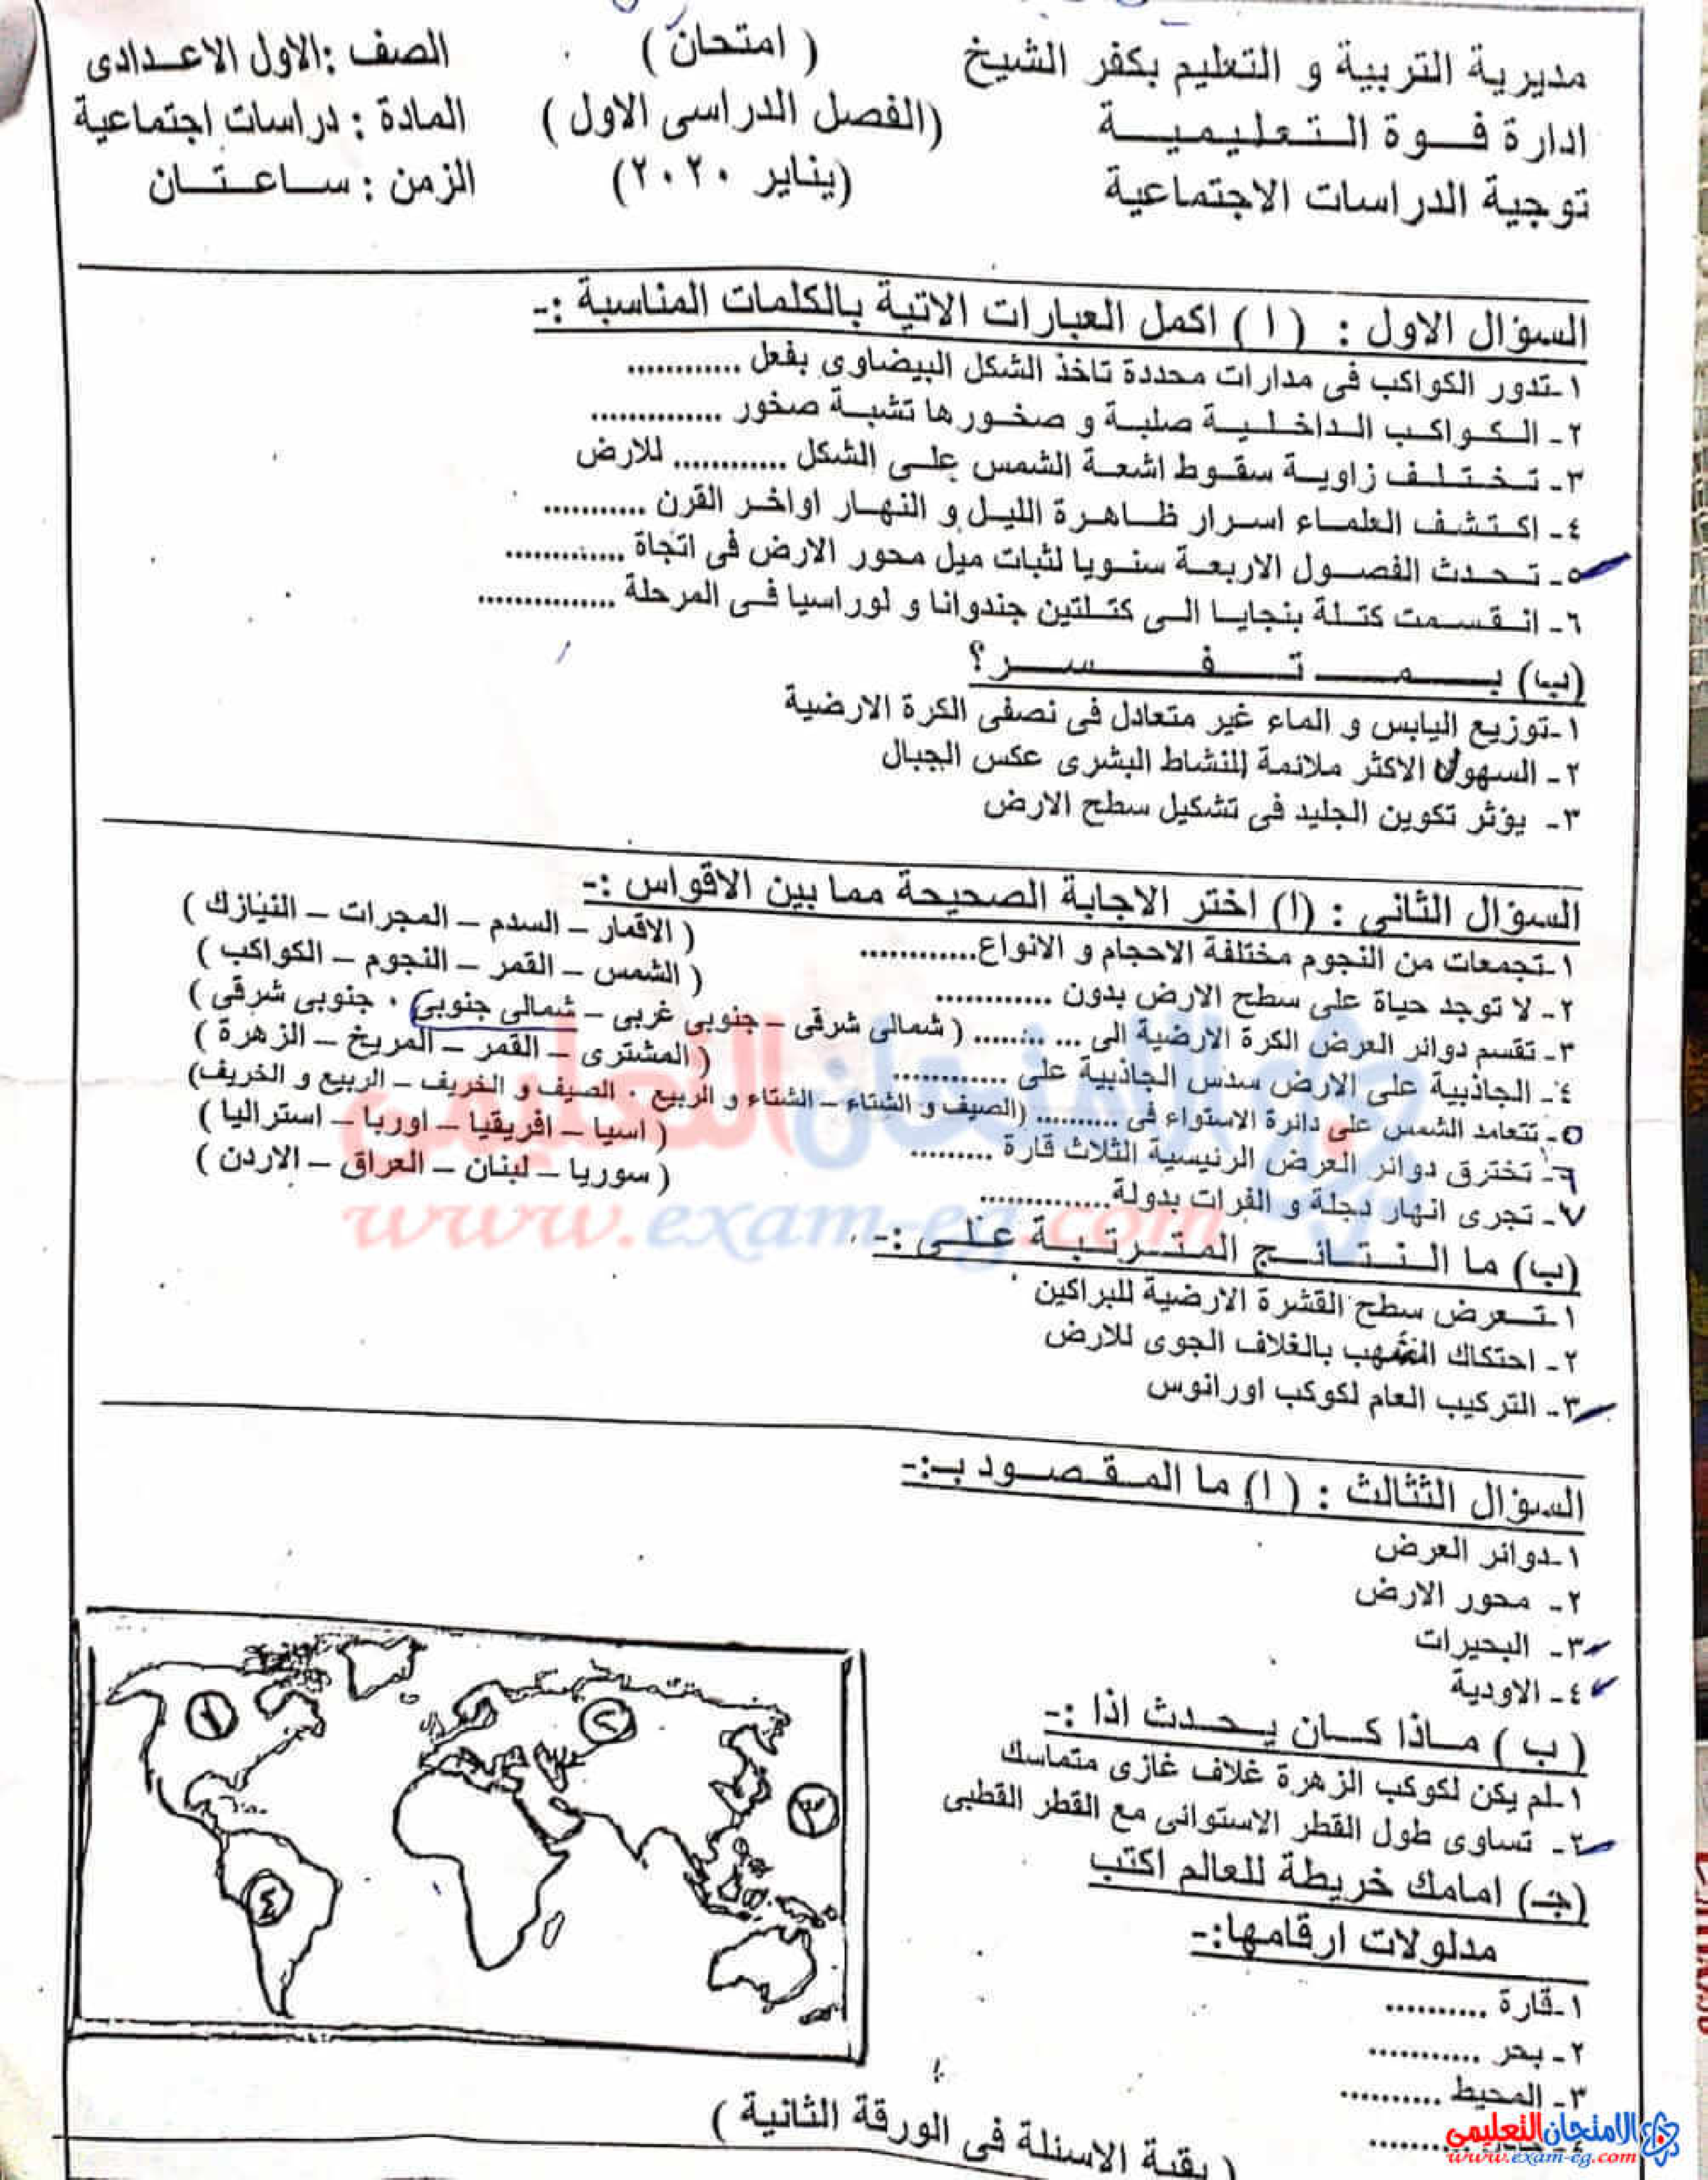 مديرية التربية و التعليم بكفر الشيخ
( امتحان )
الصف :الاول الاعدادى
ادارة فوة التعليمية
(الفصل الدراسى الاول )
المادة : دراسات اجتماعية
توجية الدراسات الاجتماعية
(يناير ٢٠٢٠)
الزمن : ساعتان
السؤال الاول : ( ا ) اكمل العبارات الاتية بالكلمات المناسبة :-
١-تدور الكواكب فى مدارات محددة تاخذ الشكل البيضاوى بفعل ............
٢- الكواكب الداخلية صلبة و صخورها تشبة صخور ..............
٣- تختلف زاوية سقوط اشعة الشمس على الشكل ............ للارض
٤- اكتشف العلماء اسرار ظاهرة الليل و النهار اواخر القرن ...........
٥- تحدث الفصول الاربعة سنويا لثبات ميل محور الارض فى اتجاة .............
٦- انقسمت كتلة بنجايا الى كتلتين جندوانا و لوراسيا فى المرحلة ...............
(ب) بم تفسر؟
١-توزيع اليابس و الماء غير متعادل فى نصفى الكرة الارضية
٢- السهول الاكثر ملائمة للنشاط البشرى عكس الجبال
٣- يؤثر تكوين الجليد فى تشكيل سطح الارض
السؤال الثانى : (ا) اختر الاجابة الصحيحة مما بين الاقواس :-
١-تجمعات من النجوم مختلفة الاحجام و الانواع............ ( الاقمار – السدم – المجرات – النيازك )
٢- لا توجد حياة على سطح الارض بدون ............ ( الشمس – القمر – النجوم – الكواكب )
٣- تقسم دوائر العرض الكرة الارضية الى ... ......... ( شمالى شرقى – جنوبى غربى – شمالى جنوبى - جنوبى شرقى )
٤- الجاذبية على الارض سدس الجاذبية على ............ ( المشترى – القمر – المريخ – الزهرة )
٥- تتعامد الشمس على دائرة الاستواء فى .......... (الصيف و الشتاء – الشتاء و الربيع - الصيف و الخريف – الربيع و الخريف)
٦- تخترق دوائر العرض الرئيسية الثلاث قارة ......... ( اسيا – افريقيا – اوربا – استراليا )
٧- تجرى انهار دجلة و الفرات بدولة.............. ( سوريا – لبنان – العراق – الاردن )
(ب) ما النتائج المترتبة على :-
١-تعرض سطح القشرة الارضية للبراكين
٢- احتكاك الشهب بالغلاف الجوى للارض
٣- التركيب العام لكوكب اورانوس
السؤال الثثالث : ( ا) ما المقصود بـ:-
١-دوائر العرض
٢- محور الارض
٣- البحيرات
٤- الاودية
( ب ) ماذا كان يحدث اذا :-
١-لم يكن لكوكب الزهرة غلاف غازى متماسك
٢- تساوى طول القطر الاستوائى مع القطر القطبى
(جـ) امامك خريطة للعالم اكتب
مدلولات ارقامها:-
١-قارة ..........
٢- بحر ...........
٣- المحيط ..........
١
٢
٣
٤
( بقية الاسئلة فى الورقة الثانية )
الامتحان التعليمى
www.exam-eg.com
الامتحان التعليمى
www.exam-eg.com